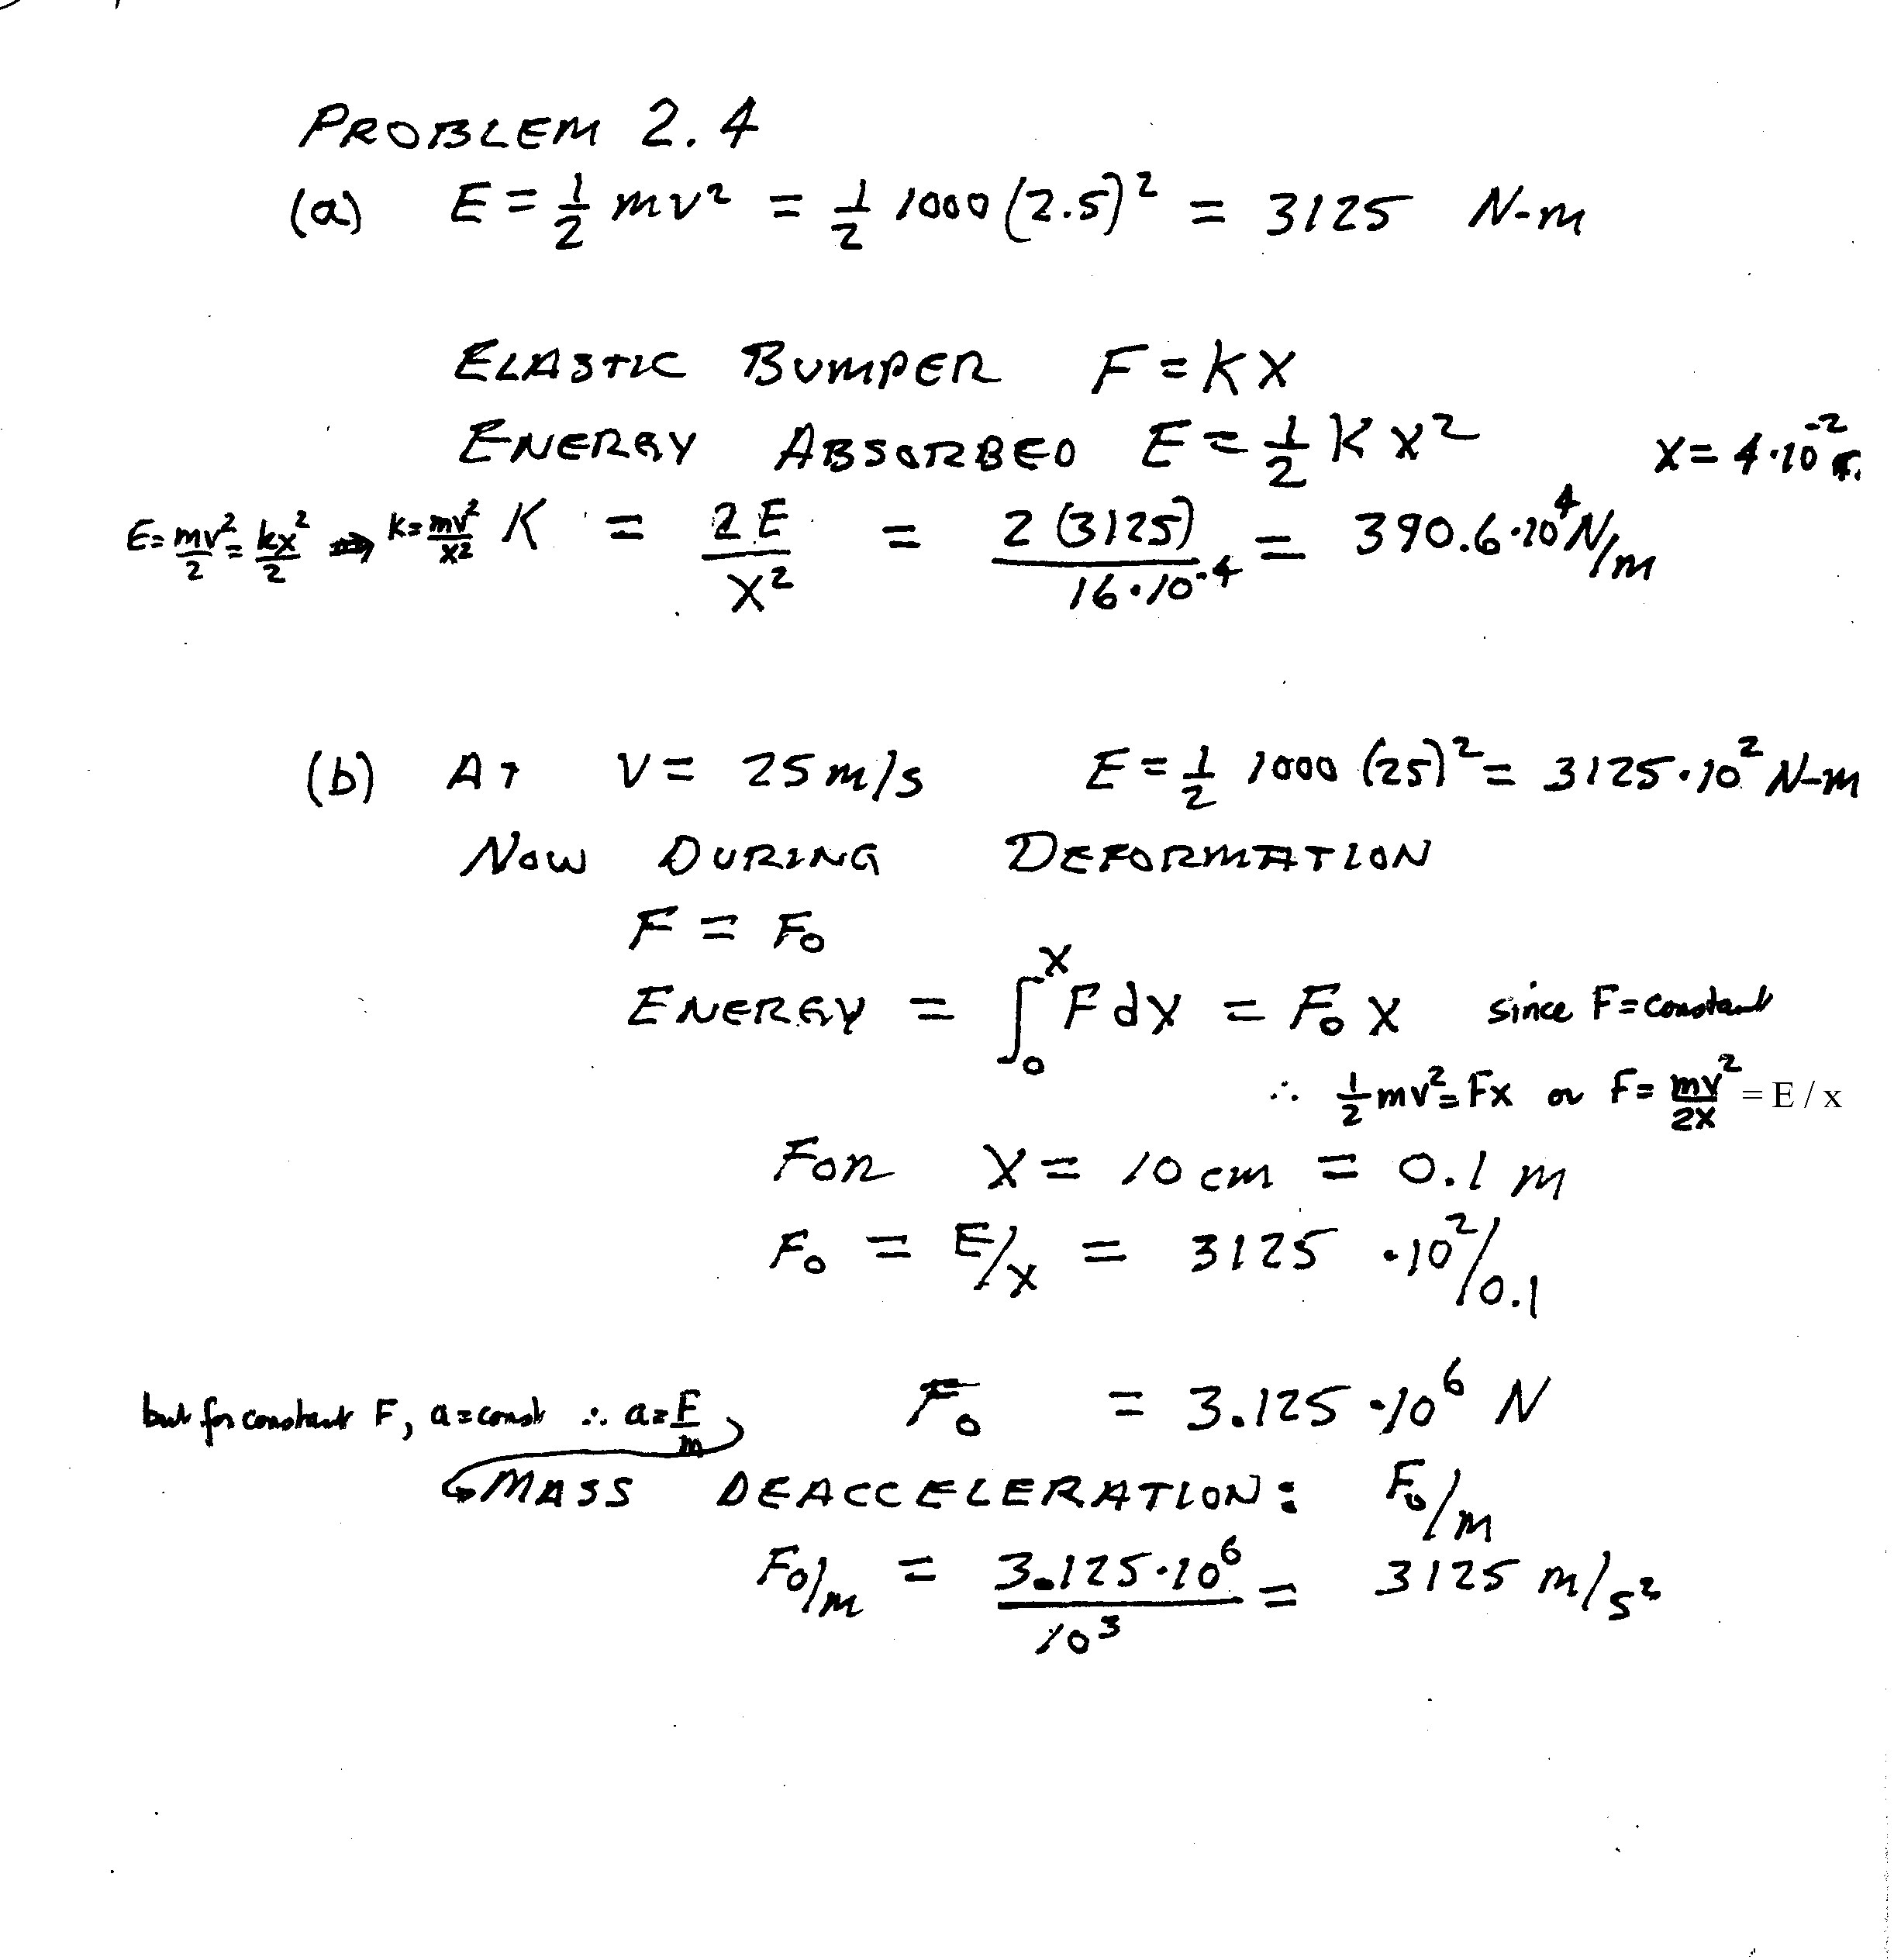 PROBLEM 2.4
(a) E = 1/2 mv² = 1/2 1000 (2.5)² = 3125 N-m
ELASTIC BUMPER F = KX
ENERGY ABSORBED E = 1/2 K X² X = 4·10⁻²
E = mv²/2 = kx²/2 ⇒ k = mv²/x² K = 2E/X² = 2(3125)/16·10⁻⁴ = 390.6·10⁴ N/m
(b) AT V = 25 m/s E = 1/2 1000 (25)² = 3125·10² N-m
NOW DURING DEFORMATION
F = F₀
ENERGY = ∫₀ˣ F dx = F₀ X since F = constant
∴ 1/2 mv² = Fx or F = mv²/2x = E / x
FOR X = 10 cm = 0.1 m
F₀ = E/X = 3125 ·10²/0.1
but for constant F, a = const ∴ a = F/m F₀ = 3.125·10⁶ N
MASS DEACCELERATION: F₀/m
F₀/m = 3.125·10⁶/10³ = 3125 m/s²